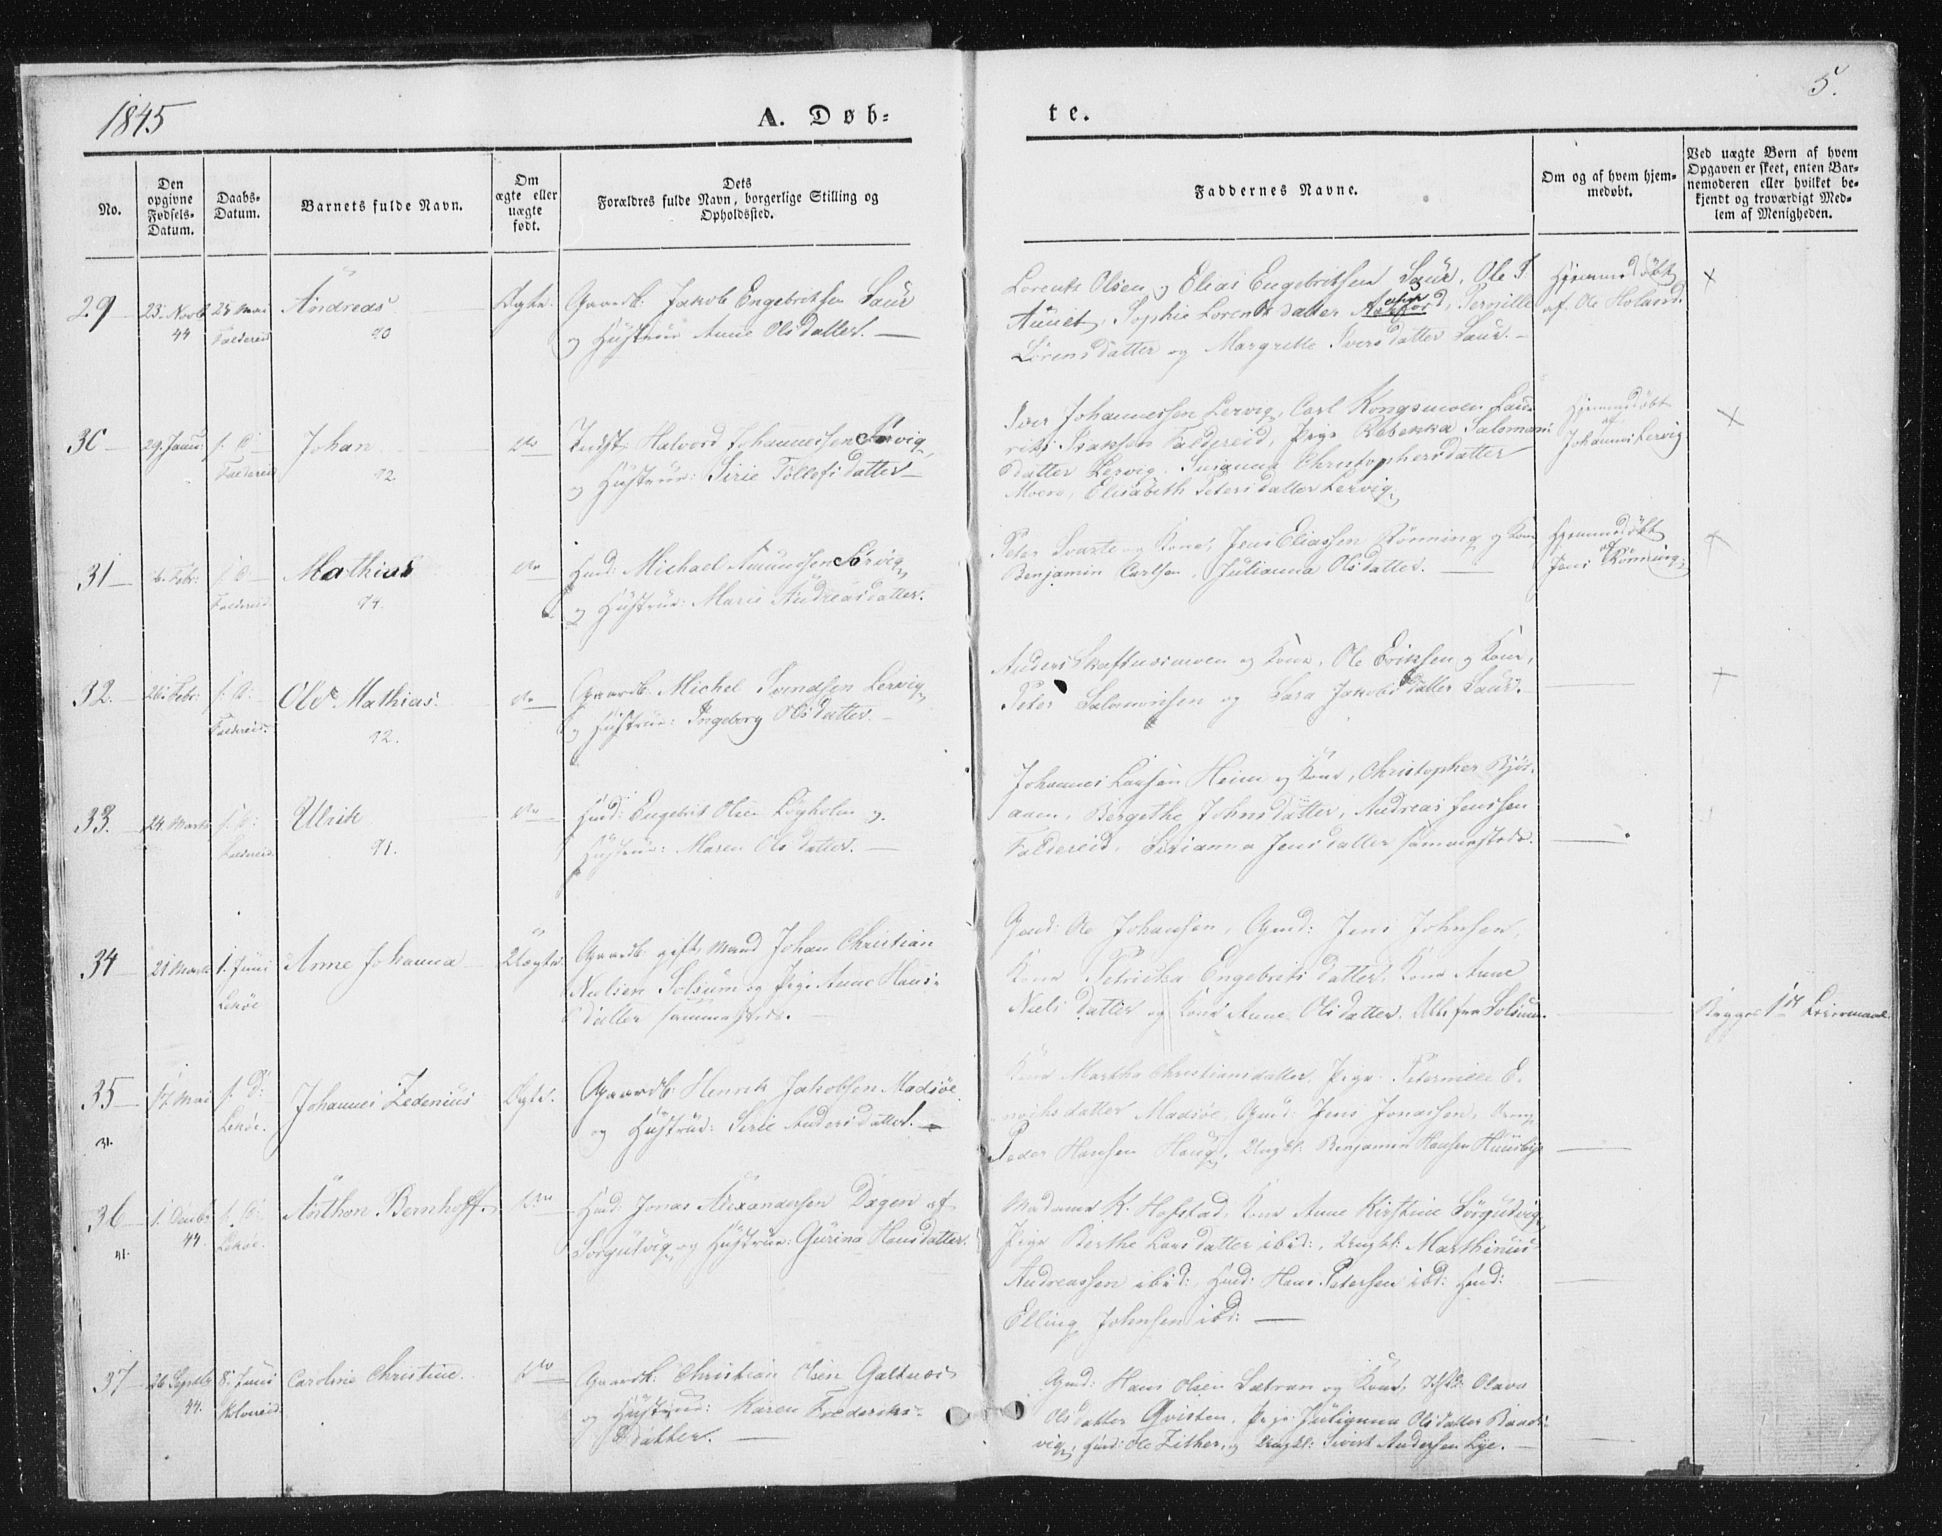 1845
A. Døb=
te.
5.
No.
Den
opgivne
Fødsels-
Datum.
Daabs-
Datum.
Barnets fulde Navn.
Om
ægte eller
uægte
født.
Dets
Forældres fulde Navn, borgerlige Stilling og
Opholdssted.
Faddernes Navne.
Om og af hvem hjem-
medøbt.
Ved uægte Børn af hvem
Opgaven er skeet, enten Bar-
nemoderen eller hvilket be-
kjendt og troværdigt Med-
lem af Menigheden.
29
23. Novb
44
25 Mai
Foldereid
Andreas
Ægte.
Gaardb. Jakob Engebretsen Saur
og Hustrue Anne Olsdatter.
Lorents Olsen og Elias Engebretsen Saur, Ole T.
Aunet, Sophie Lorentsdatter Pernille
Lorensdatter og Margrethe Iversdatter Saur.
Hjemmedøbt
af Ole Holand.
30
29. Janu:
f. D:
Foldereid
Johan
Do
Indst: Halvord Johannessen Sørvig
og Hustrue: Sirie Tollefsdatter
Iver Johannessen Lervig, Carl Kongsmoen Lau-
rits Isaksen Foldereid, Pige Rebekka Salomons
datter Lervig, Susanna Christophersdatter
Moen, Elisabeth Petersdatter Lervig
Hjemmedøbt
af
Johannes Lervig
31
6. Febr:
f. D
Foldereid
Mathias
Do
Huusm: Michael Amundsen Sørvig
og Hustrue: Maria Andreasdatter.
Peter Svarte og Kone, Jens Eliassen Rønning og Kone
Benjamin Carlsen, Julianna Olsdatter.
Hjemmedøbt
af
Jens Rønning.
32.
26. Febr:
f. D:
Foldereid.
Ole Mathias.
92.
Do
Gaardb. Michel Svendsen Lervig
og Hustrue: Ingeborg Olsdatter.
Anders Skaftnesmoen og Kone, Ole Eriksen og Kone,
Peter Salomonsen og Sara Jakobsdatter Saur.
33.
24. Marts
f. D:
Foldereid.
Ulrik
91.
Do
Huusm: Engebret Olsen Løgholm og
Hustrue: Maren Olsdatter.
Johannes Larsen Heim og Kone, Christopher Bjør-
aaen, Bergethe Johnsdatter, Andreas Jenssen
Foldereid, Jensdatter sammesteds.
34
21 Marts
1. Juni
Lekøe
Anne Johanna
Uægte.
Gaardb. gift Mand Johan Christian
Nielsen Solsum og Pige Anne Hans-
datter sammesteds.
Gmd: Ole Johansen, Gmd: Jens Johnsen,
Kone Petricka Engebretsdatter, Kone Anne
Nielsdatter og Kone Anne Olsdatter. Alle fra Solsum.
Begges 1ste Leiermaal
35
17. Mai
f. D:
Lekøe.
Johannes Zedenius
Ægte.
Gaardb: Henrik Jakobsen Madsøe
og Hustrue: Sirie Andersdatter.
Kone Martha Christiansdatter, Pige Peternille E-
nochsdatter Madsøe, Gmd: Jens Jonassen, Dreng
Peder Hansen Haug, Ungk: Benjamin Hansen Huusby
36
41.
1. Decbr
44.
f. D:
Lekøe.
Arthon Bernhoff.
Do
Huusm: Jonas Alexandersen Dragen af
Sørgutvig, og Hustrue: Gurina Hansdatter.
Madame K. Hofstad, Kone Anne Kirstine Sørgutvig
Pige Berthe Larsdatter ibid:, Ungk: Marthinus
Andreassen ibid:, Huusm: Hans Petersen ibd: Huusm:
Elling Johnsen ibd:
37
26 Septbr
44.
8. Juni
Kolvereid
Caroline Christine.
Do
Gaardb. Christian Olsen Galtnes
og Hustrue: Karen Frederiks-
datter.
Gmd: Hans Olsen Sætran og Kone, Olava
Olsdatter Qvisten, Pige Julianna Olsdatter Bands-
vig, Huusm: Ole Zither, og Ungk: Sivert Andersen Lye.